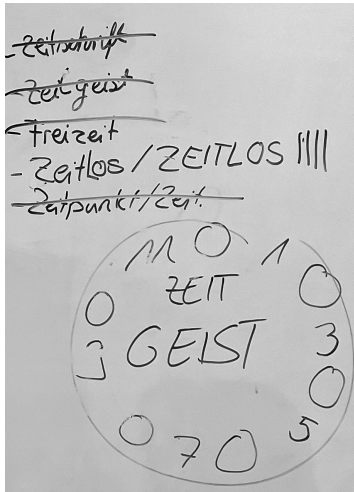 - Zeitschrift
- Zeitgeist
- Freizeit
- Zeitlos / ZEITLOS ||||
- Zeitpunkt/Zeit.
11 O 1
ZEIT
O O
GEIST
9 3
O
5
O 7 O